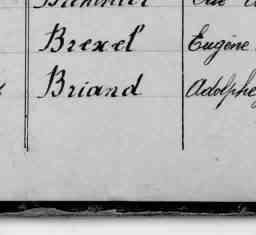 Brexel Eugène
Briand Adolphe